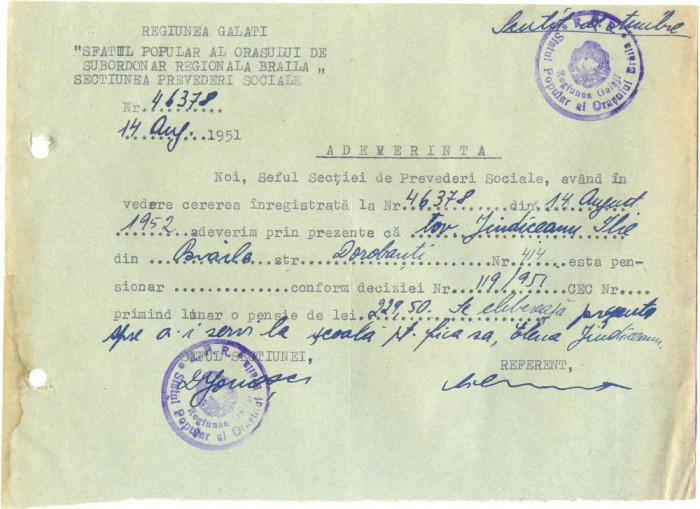 Scutit de timbre
REGIUNEA GALATI
"SFATUL POPULAR AL ORASULUI DE
SUBORDONAR REGIONALA BRAILA "
SECTIUNEA PREVEDERI SOCIALE
Nr. 46378
14 Aug. 1951
R.P.R. Sfatul Popular al Orașului Brăila
Regiunea Galați
ADEMERINTA
Noi, Seful Secției de Prevederi Sociale, având în
vedere cererea înregistrată la Nr. 46.378 din 14 August
1952 adeverim prin prezente că tov Jindiceanu Ilie
din Braila str Dorobanti Nr 414 esta pen-
sionar conform deciziei Nr 119/951 CEC Nr
primind lunar o pensie de lei 229,50. Se eliberează prezenta
spre a-i servi la școală pt. fica sa, Elena Jindiceanu
SEFUL SECTIUNEI,
REFERENT,
R.P.R. Sfatul Popular al Orașului Brăila
Regiunea Galați